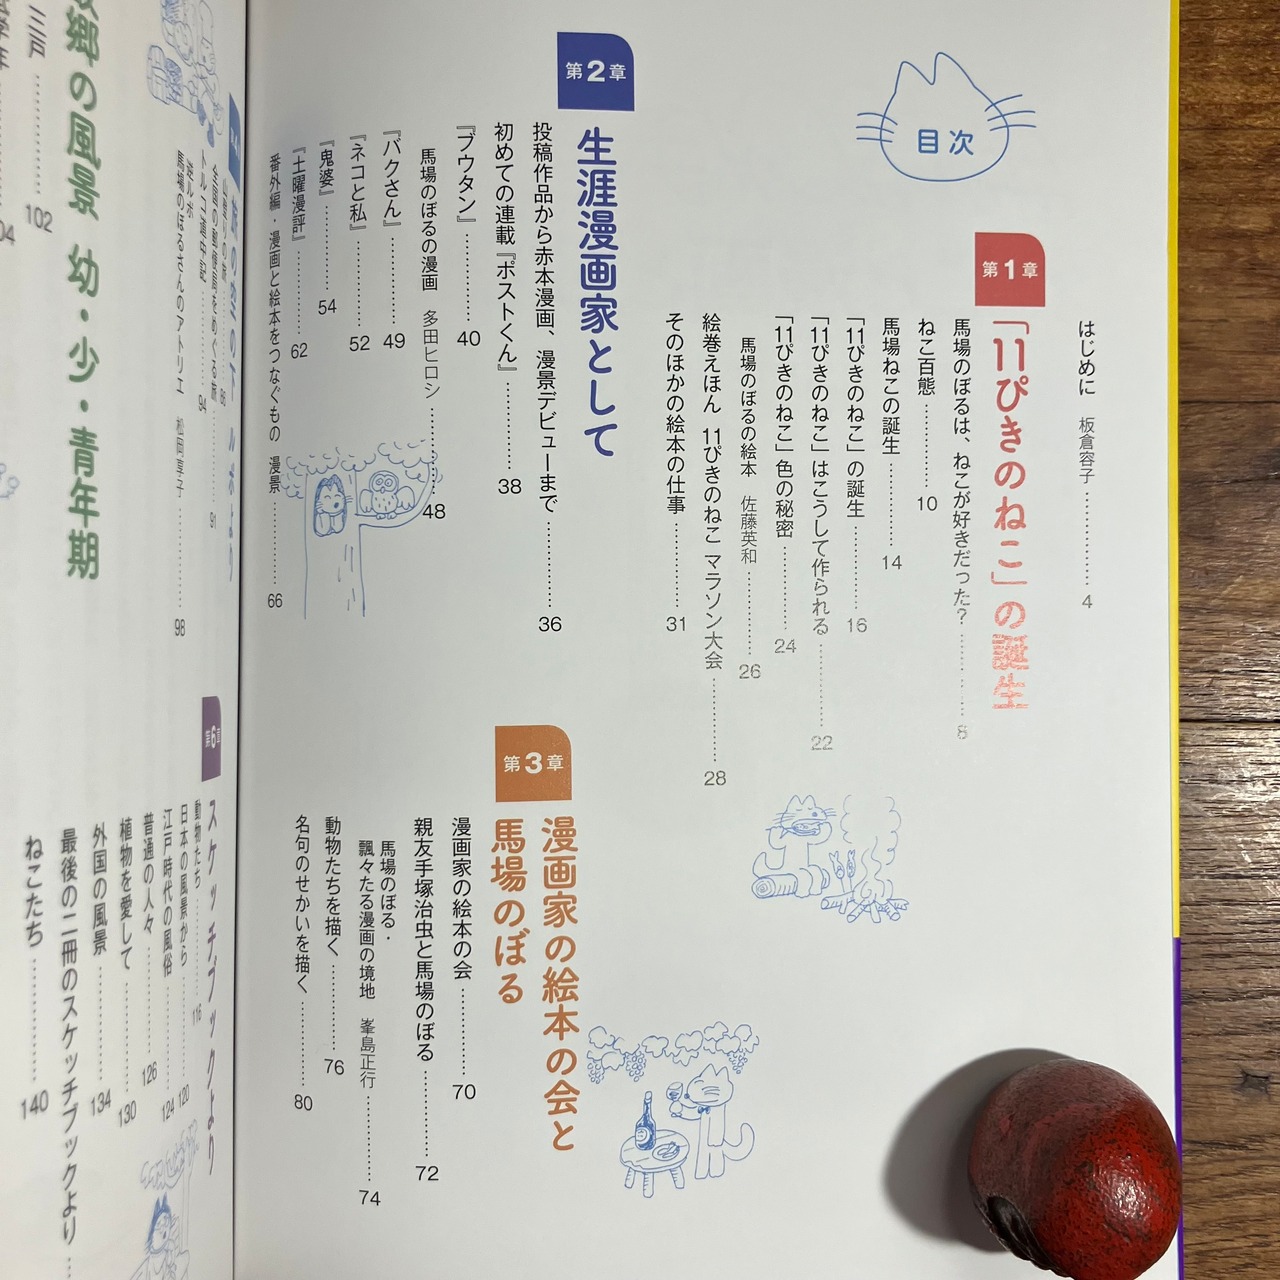 目次
はじめに 板倉容子…………4
第1章
「11ぴきのねこ」の誕生
馬場のぼるは、ねこが好きだった?…………8
ねこ百態…………10
馬場ねこの誕生…………14
「11ぴきのねこ」の誕生…………16
「11ぴきのねこ」はこうして作られる…………22
「11ぴきのねこ」色の秘密…………24
馬場のぼるの絵本 佐藤英和…………26
絵巻えほん 11ぴきのねこ マラソン大会…………28
そのほかの絵本の仕事…………31
第2章
生涯漫画家として
投稿作品から赤本漫画、漫景デビューまで…………36
初めての連載『ポストくん』…………38
『ブウタン』…………40
馬場のぼるの漫画 多田ヒロシ…………48
『バクさん』…………49
『ネコと私』…………52
『鬼婆』…………54
『土曜漫評』…………62
番外編・漫画と絵本をつなぐもの 漫景…………66
第3章
漫画家の絵本の会と
馬場のぼる
漫画家の絵本の会…………70
親友手塚治虫と馬場のぼる…………72
馬場のぼる・
飄々たる漫画の境地 峯島正行…………74
動物たちを描く…………76
名句のせかいを描く…………80
91
トルコ道中記…………94
逆ルポ
馬場のぼるさんのアトリエ 松岡享子…………98
郷の風景 幼・少・青年期
三戸…………102
04
第6章
スケッチブックより
動物たち…………116
日本の風景から…………120
江戸時代の風俗…………124
普通の人々…………126
植物を愛して…………130
外国の風景…………134
最後の二冊のスケッチブックより…
ねこたち…………140